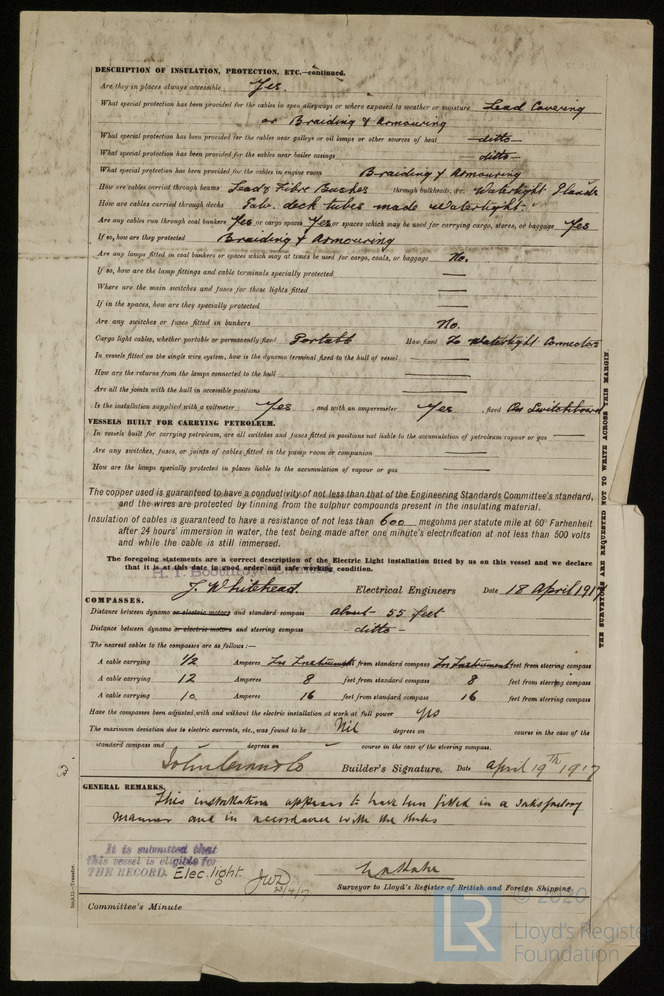 DESCRIPTION OF INSULATION, PROTECTION, ETC.—continued.
Are they in places always accessible Yes.
What special protection has been provided for the cables in open alleyways or where exposed to weather or moisture Lead Covering
or Braiding & Armouring
What special protection has been provided for the cables near galleys or oil lamps or other sources of heat —ditto—
What special protection has been provided for the cables near boiler casings —ditto—
What special protection has been provided for the cables in engine room Braiding & Armouring
How are cables carried through beams Lead & Fibre Bushes through bulkheads, &c. Watertight Glands
How are cables carried through decks Galv. deck tubes made watertight.
Are any cables run through coal bunkers Yes or cargo spaces Yes or spaces which may be used for carrying cargo, stores, or baggage Yes
If so, how are they protected Braiding & Armouring
Are any lamps fitted in coal bunkers or spaces which may at times be used for cargo, coals, or baggage No.
If so, how are the lamp fittings and cable terminals specially protected —
Where are the main switches and fuses for these lights fitted —
If in the spaces, how are they specially protected —
Are any switches or fuses fitted in bunkers No.
Cargo light cables, whether portable or permanently fixed Portable How fixed To Watertight Connectors
In vessels fitted on the single wire system, how is the dynamo terminal fixed to the hull of vessel —
How are the returns from the lamps connected to the hull —
Are all the joints with the hull in accessible positions —
Is the installation supplied with a voltmeter Yes, and with an amperemeter Yes, fixed On Switchboard
VESSELS BUILT FOR CARRYING PETROLEUM.
In vessels built for carrying petroleum, are all switches and fuses fitted in positions not liable to the accumulation of petroleum vapour or gas —
Are any switches, fuses, or joints of cables fitted in the pump room or companion —
How are the lamps specially protected in places liable to the accumulation of vapour or gas —
The copper used is guaranteed to have a conductivity of not less than that of the Engineering Standards Committee's standard,
and the wires are protected by tinning from the sulphur compounds present in the insulating material.
Insulation of cables is guaranteed to have a resistance of not less than 600 megohms per statute mile at 60° Farhenheit
after 24 hours' immersion in water, the test being made after one minute's electrification at not less than 500 volts
and while the cable is still immersed.
The foregoing statements are a correct description of the Electric Light installation fitted by us on this vessel and we declare
that it is at this date in good order and safe working condition.
J. Whitehead. Electrical Engineers Date 18 April 1917
COMPASSES.
Distance between dynamo or electric motors and standard compass about 55 feet
Distance between dynamo or electric motors and steering compass ditto—
The nearest cables to the compasses are as follows:—
A cable carrying 1/2 Amperes feet from standard compass feet from steering compass
A cable carrying 12 Amperes 8 feet from standard compass 8 feet from steering compass
A cable carrying 10 Amperes 16 feet from standard compass 16 feet from steering compass
Have the compasses been adjusted with and without the electric installation at work at full power yes
The maximum deviation due to electric currents, etc., was found to be Nil degrees on course in the case of the
standard compass and degrees on course in the case of the steering compass.
Builder's Signature. Date April 19th 1917
GENERAL REMARKS.
This installation appears to have been fitted in a satisfactory
manner and in accordance with the Rules
It is submitted that
this vessel is eligible for
THE RECORD. Elec. light. JWD
23/4/17
Surveyor to Lloyd's Register of British and Foreign Shipping.
Committee's Minute
THE SURVEYORS ARE REQUESTED NOT TO WRITE ACROSS THIS MARGIN
© 2020
LR Lloyd's Register
Foundation